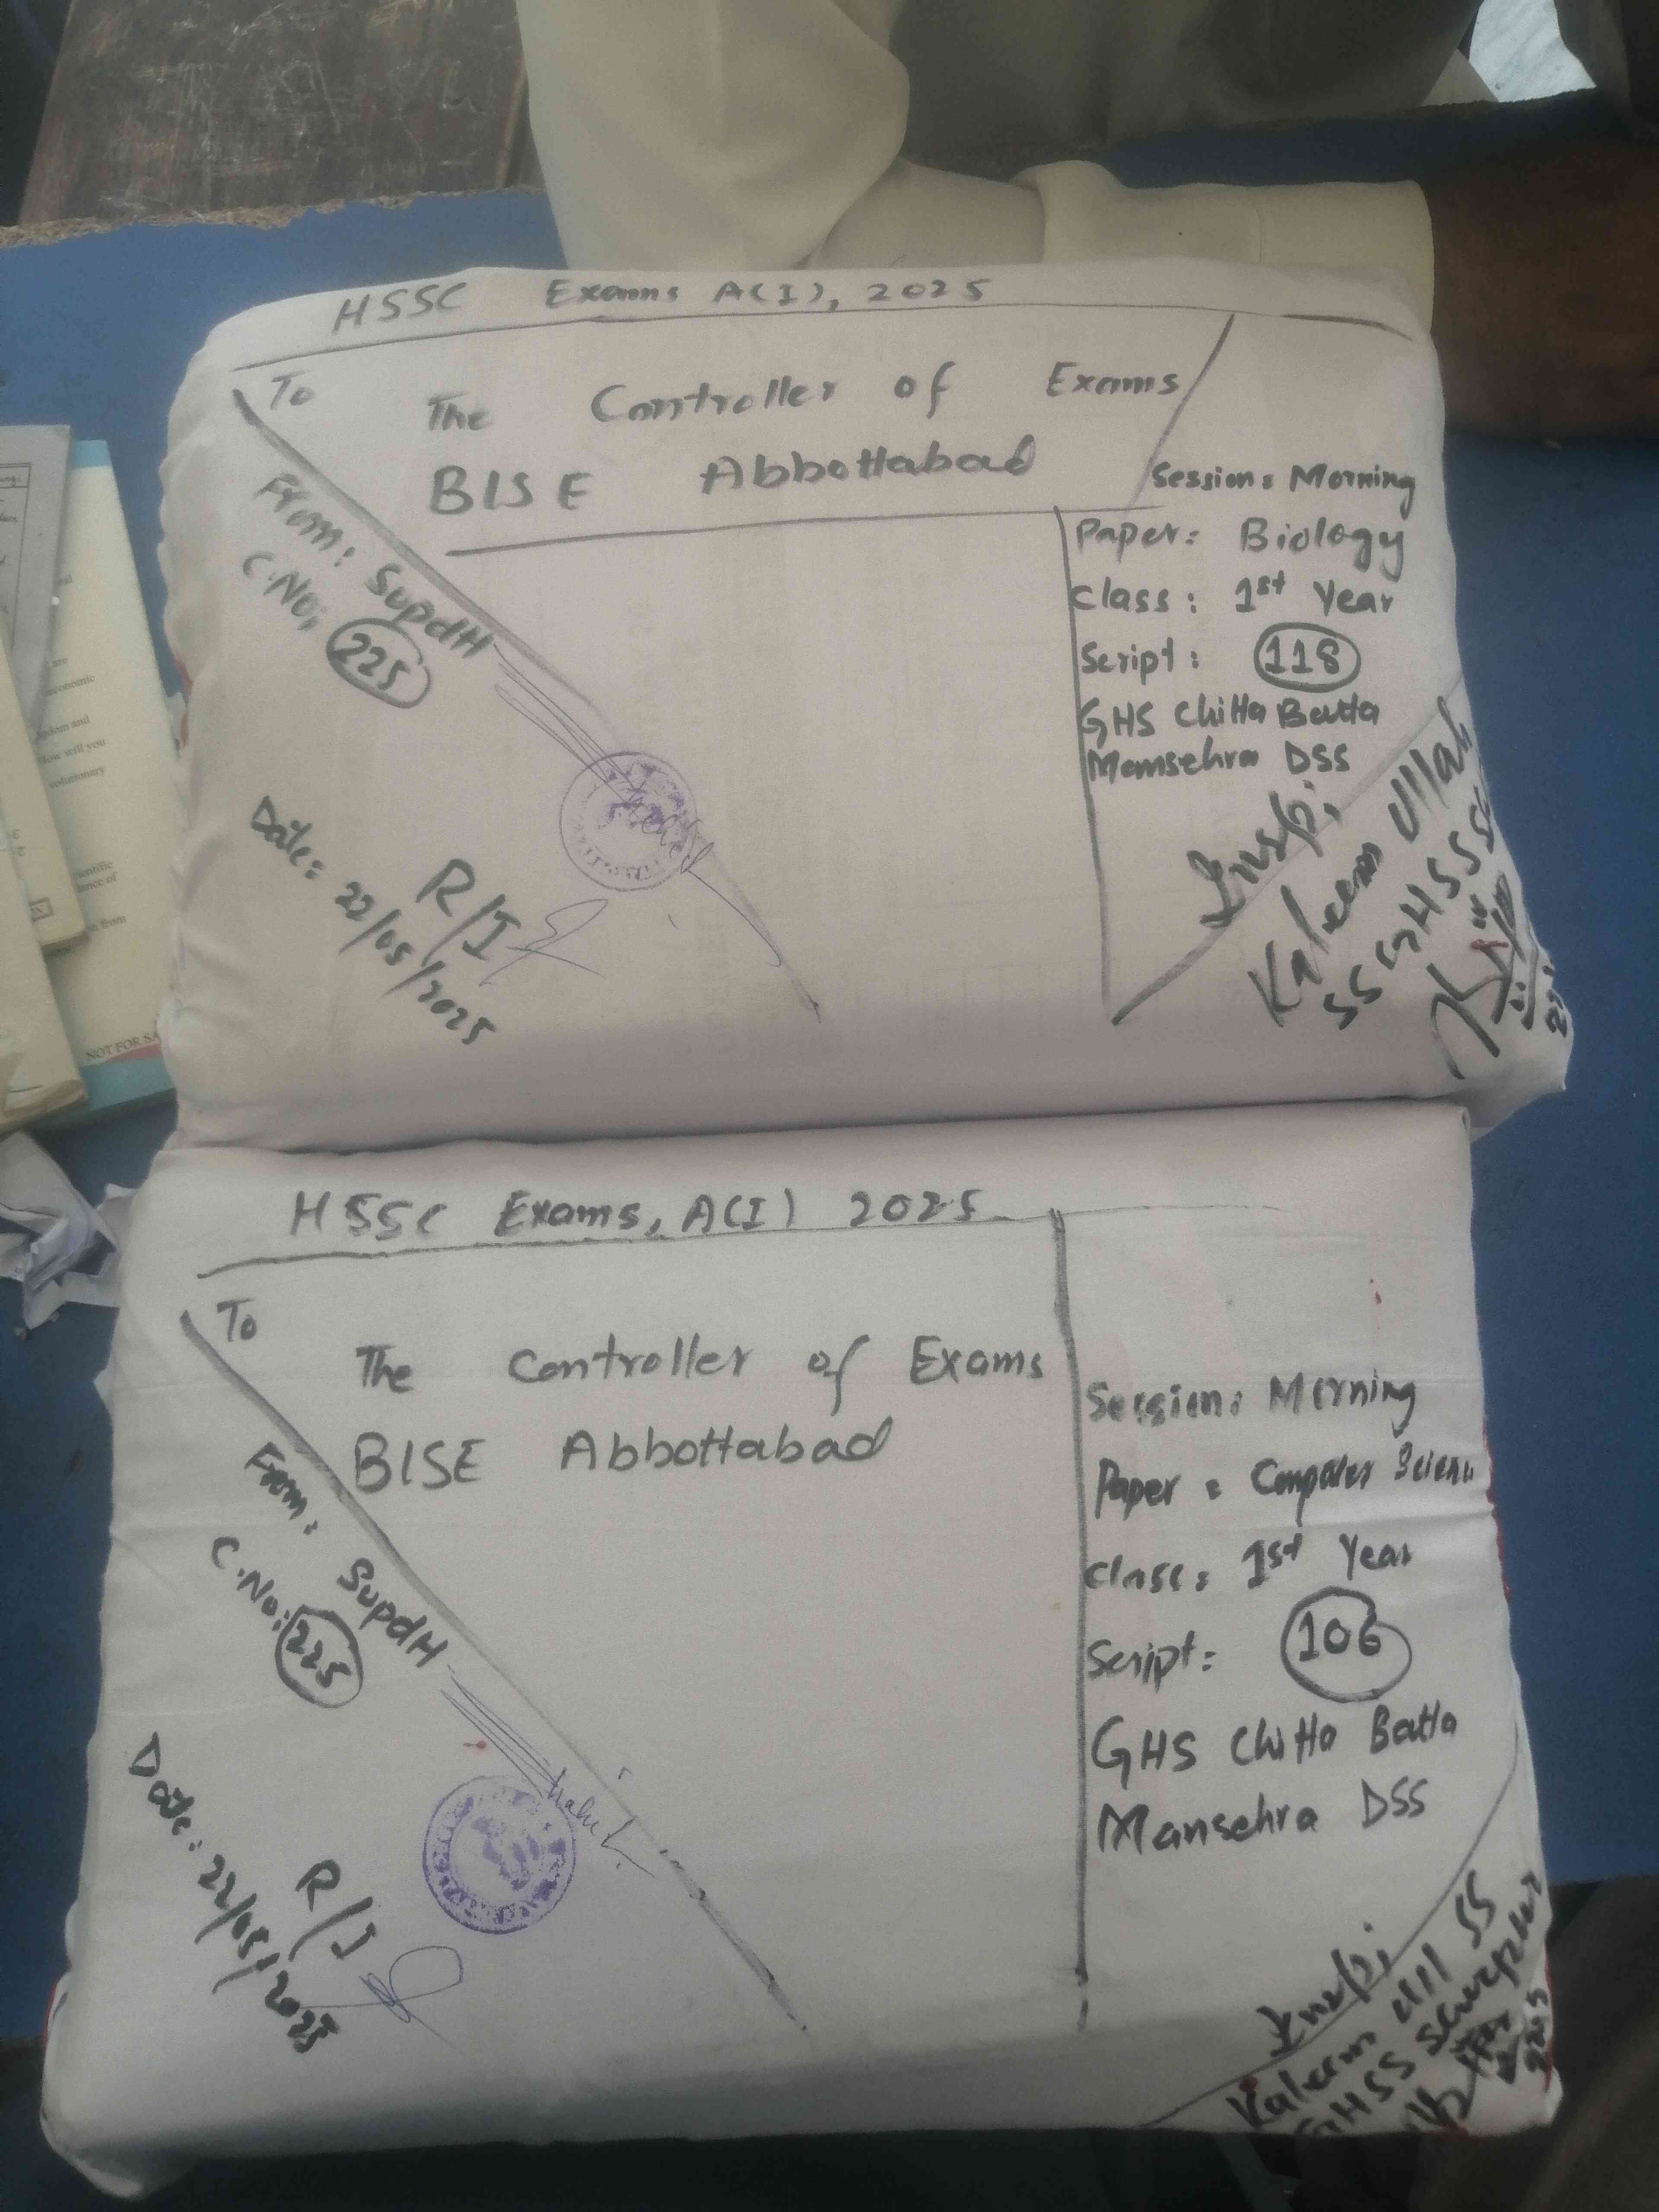 HSSC Exams A(I), 2025
To
The Controller of Exams
BISE Abbottabad
From: SupdH
C.No: 225
Date: 22/05/2025
R/I
Session: Morning
Paper: Biology
Class: 1st Year
Script: 118
GHS Chitta Batta
Mansehra DSS
Insp:
Kaleem Ullah
SS GHSS
HSSC Exams, A(I) 2025
To
The Controller of Exams
BISE Abbottabad
From: SupdH
C.No: 225
Date: 22/05/2025
R/I
Session: Morning
Paper: Computer Science
Class: 1st Year
Script: 106
GHS Chitta Batta
Mansehra DSS
Insp:
Kaleem Ull SS
GHSS
2025
NOT FOR SA
economic
dom and
How will you
volutionary
entific
ance of
from